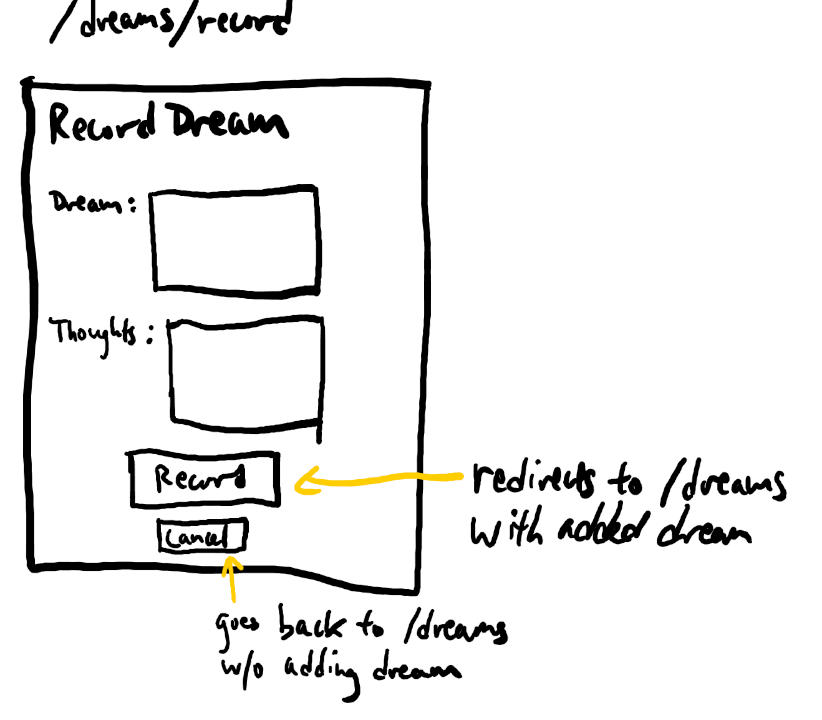 /dreams/record
Record Dream
Dream:
Thoughts:
Record
redirects to /dreams
with added dream
Cancel
goes back to /dreams
w/o adding dream